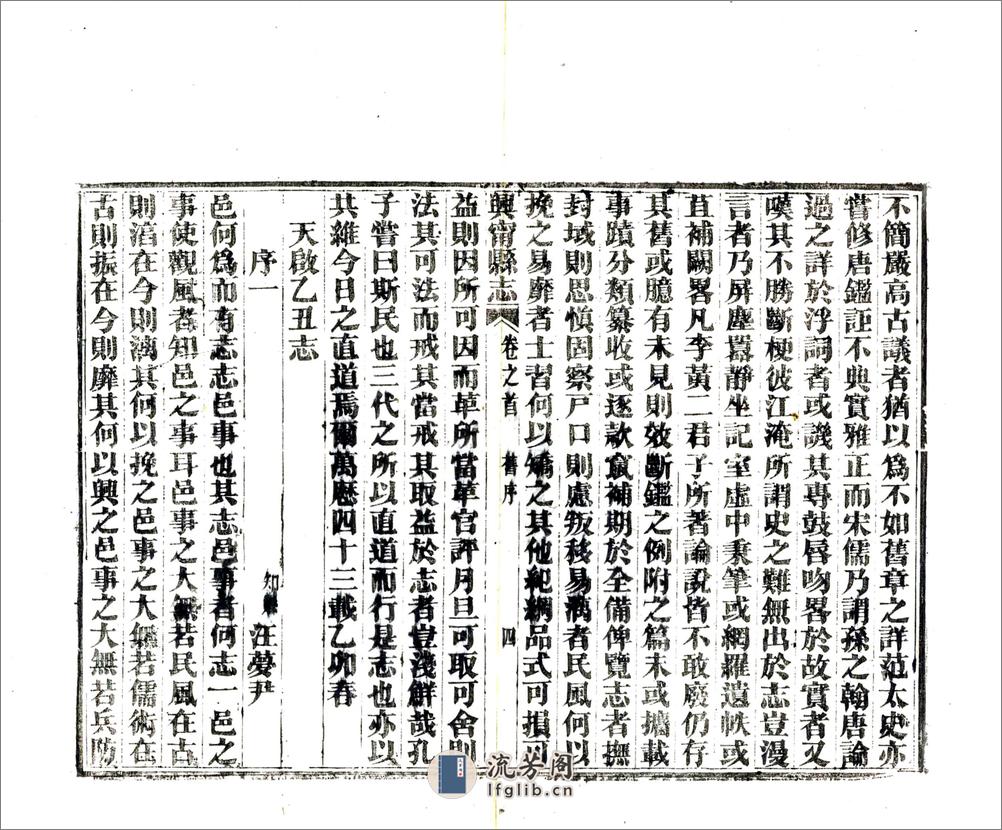 不簡嚴高古議者猶以爲不如舊章之詳范太史亦
嘗修唐鑑詎不典實雅正而宋儒乃謂孫之翰唐論
過之詳於浮詞者或譏其專鼓唇吻畧於故實者又
嘆其不勝斷梗彼江淹所謂史之難無出於志豈漫
言者乃屏塵囂靜坐記室虛中秉筆或網羅遺帙或
苴補闕畧凡李黃二君子所著論說皆不敢廢仍存
其舊或臆有未見則效斷鑑之例附之篇末或攟載
事蹟分類纂收或逐款竄補期於全備俾覽志者撫
封域則思慎固察戸口則慮叛移易漓者民風何以
挽之易靡者士習何以矯之其他紀綱品式可損可
興甯縣志 卷之首 舊序 四
益則因所可因而革所當革官評月旦可取可舍則
法其可法而戒其當戒其取益於志者豈淺鮮哉孔
子嘗曰斯民也三代之所以直道而行是志也亦以
共維今日之直道焉爾萬歷四十三載乙卯春
天啟乙丑志
序一 知縣汪夢尹
邑何爲而有志志邑事也其志邑事者何志一邑之
事使觀風者知邑之事耳邑事之大無若民風在古
則滔在今則漓其何以挽之邑事之大無若儒術在
古則振在今則靡其何以興之邑事之大無若兵防
流芳阁
lfglib.cn